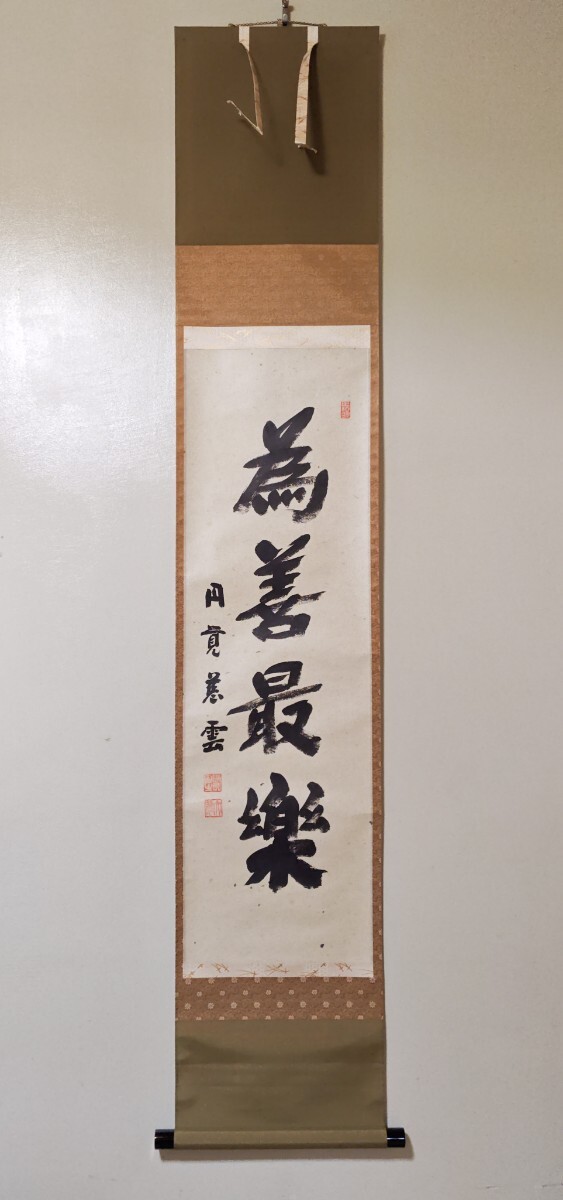 為善最樂
円覚慈雲